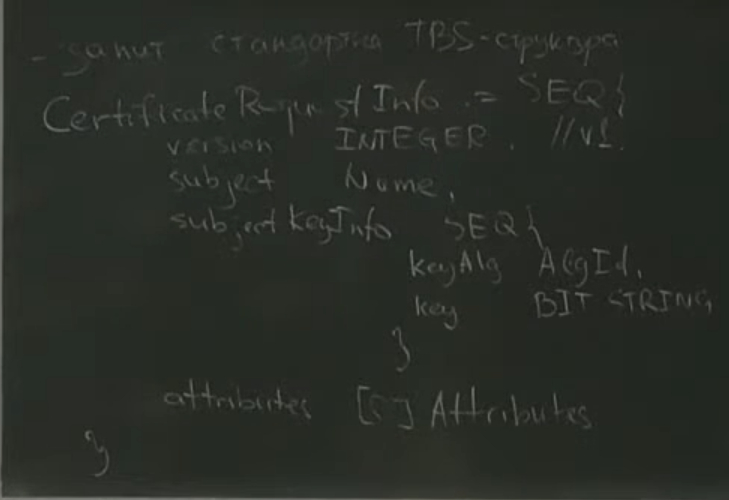 - запит стандартна TBS-структура
CertificateRequestInfo := SEQ{
version INTEGER, //v1.
subject Name,
subjectKeyInfo SEQ{
keyAlg AlgId,
key BIT STRING
}
attributes [0] Attributes
}